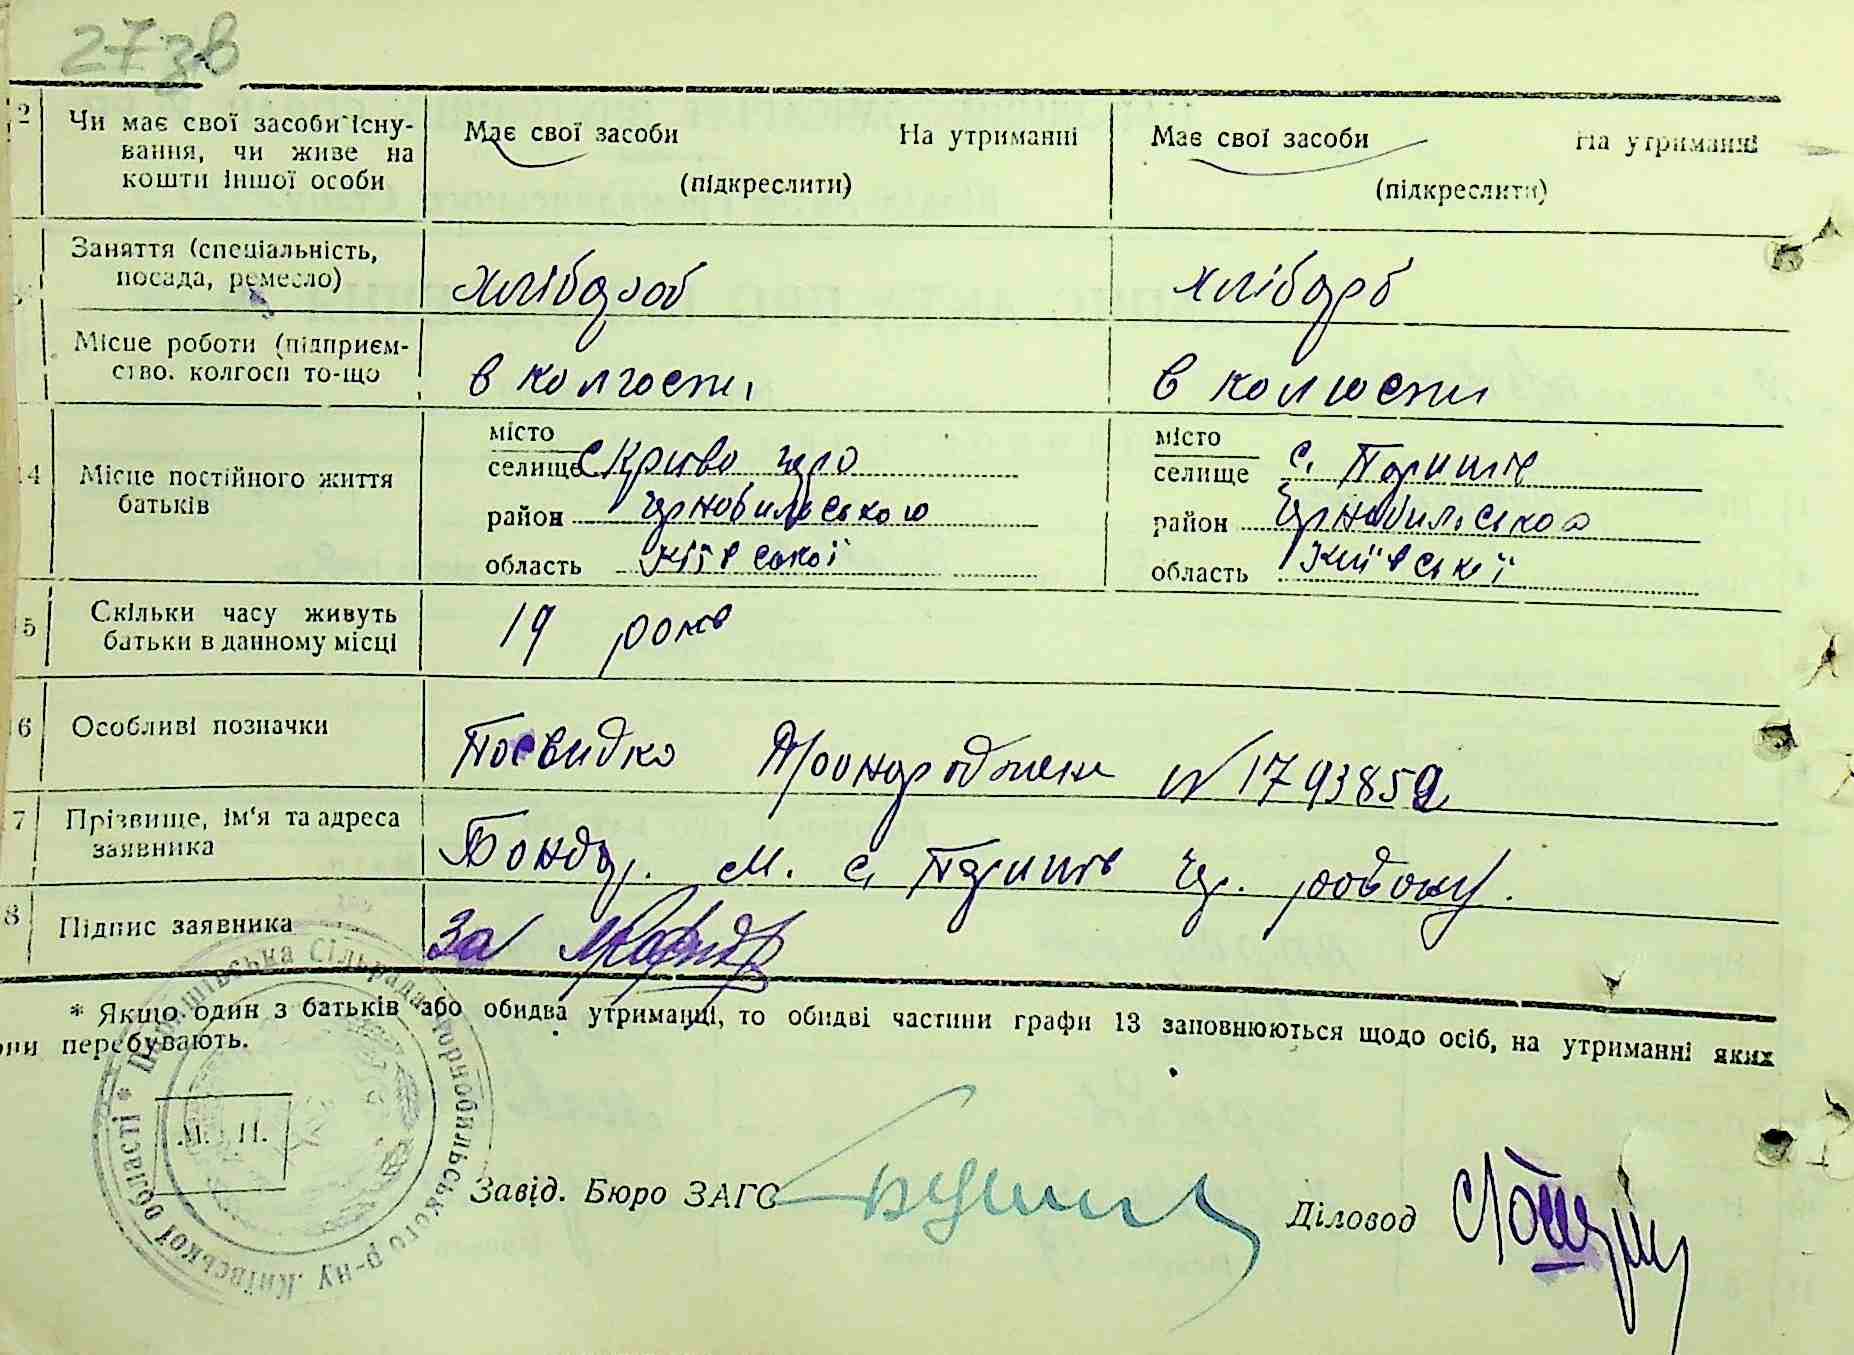 27зв
2 Чи має свої засоби існу-
вання, чи живе на
кошти іншої особи
Має свої засоби На утриманні
(підкреслити)
Має свої засоби На утриманні
(підкреслити)
Заняття (спеціальність,
посада, ремесло)
хлібороб
хлібороб
Місце роботи (підприєм-
ство. колгосп то-що
в колгоспі
в колгоспі
14 Місце постійного життя
батьків
місто
селище с Крива гора
район Чорнобильского
область Київської
місто
селище с. Паришів
район Чорнобильского
область Київської
5 Скільки часу живуть
батьки в данному місці
19 років
6 Особливі позначки
Посвидка Пронародження N 1793859
7 Прізвище, ім'я та адреса
заявника
Бондар. М. с. Паришів Чор. району.
8 Підпис заявника
За
* Якщо один з батьків або обидва утриманці, то обидві частини графи 13 заповнюються щодо осіб, на утриманні яких
они перебувають.
Паришівська Сільрада Чорнобильського р-ну Київської області *
М. П.
Завід. Бюро ЗАГС
Діловод